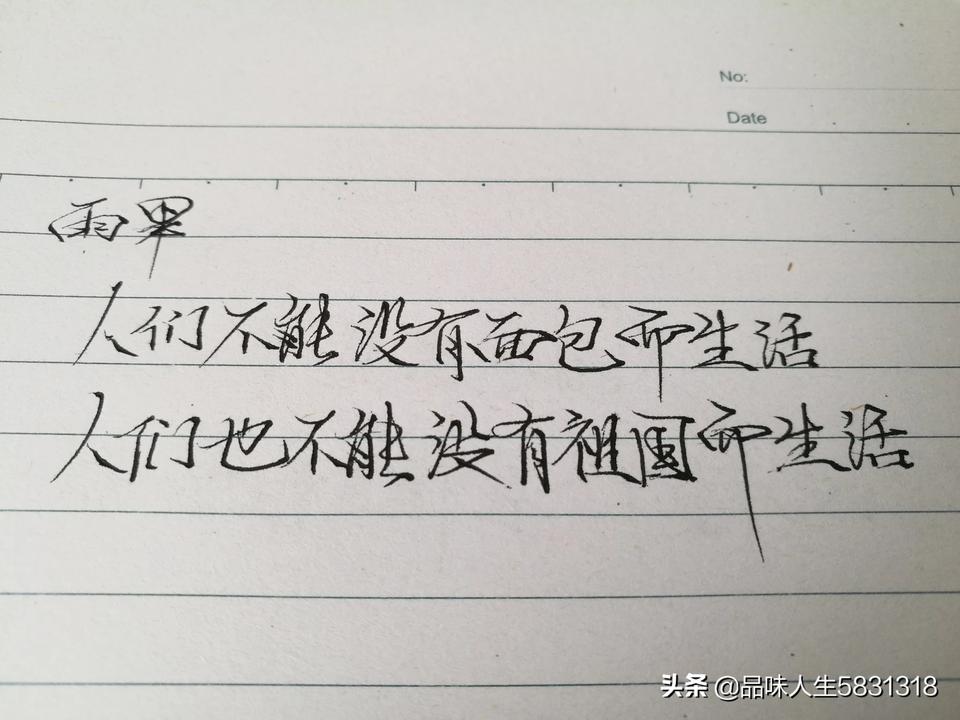 No:
Date
雨果
人们不能没有面包而生活
人们也不能没有祖国而生活
头条 @品味人生5831318